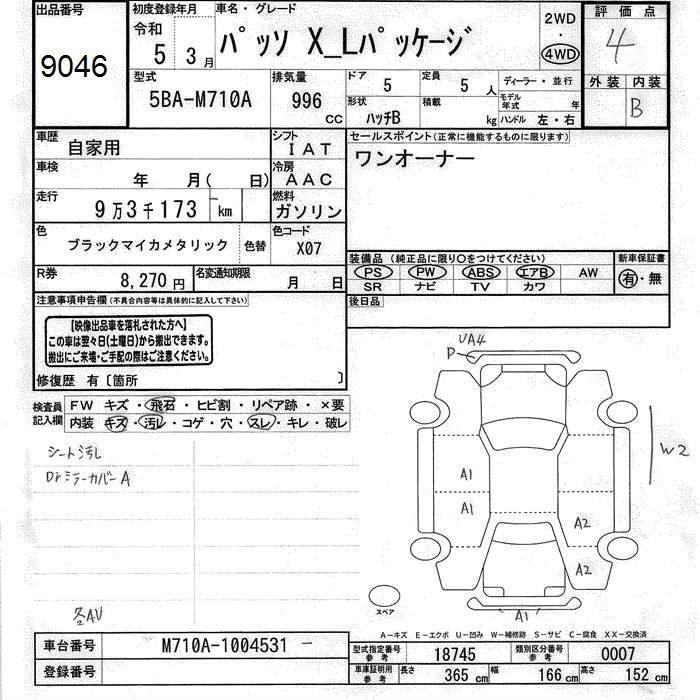 出品番号
9046
初度登録年月
令和
5年 3月
車名・グレード
パッソ X_Lパッケージ
2WD
・
4WD
評価点
4
外装 内装
B
型式
5BA-M710A
排気量
996
CC
ドア
5
定員
5人
ディーラー・並行
形状
ハッチB
積載
kg
モデル年式 年
ハンドル 左・右
車歴
自家用
シフト
IAT
セールスポイント(正常に機能するものに限ります)
ワンオーナー
車検
年 月( 日)
冷房
AAC
走行
9万3千173 km
燃料
ガソリン
色
ブラックマイカメタリック
色替
色コード
X07
装備品(純正品に限り○をつけてください)
新車保証書
PS PW ABS エアB AW
SR ナビ TV カワ
有・無
R券
8,270円
名変通知期限
月 日
後日品
注意事項申告欄(不具合内容等は具体的に記入して下さい)
【映像出品車を落札された方へ】
この車は翌々日(土曜日)から搬出できます。
搬出にご来場・ご手配の際はご注意ください。
修復歴 有〔箇所 〕
検査員記入欄
FW キズ・飛石・ヒビ割・リペア跡・×要
内装 キズ・汚レ・コゲ・穴・スレ・キレ・破レ
シート汚れ
Drミラーカバー A
各AU
UA4
P
W2
A1
A1
A2
A2
A1
スペア
A-キズ E-エクボ U-凹み W-補修跡 S-サビ C-腐食 XX-交換済
車台番号
M710A-1004531
登録番号
型式指定番号 参考
18745
類別区分番号 参考
0007
車庫証明用 参考
長さ
365 cm
幅
166 cm
高さ
152 cm